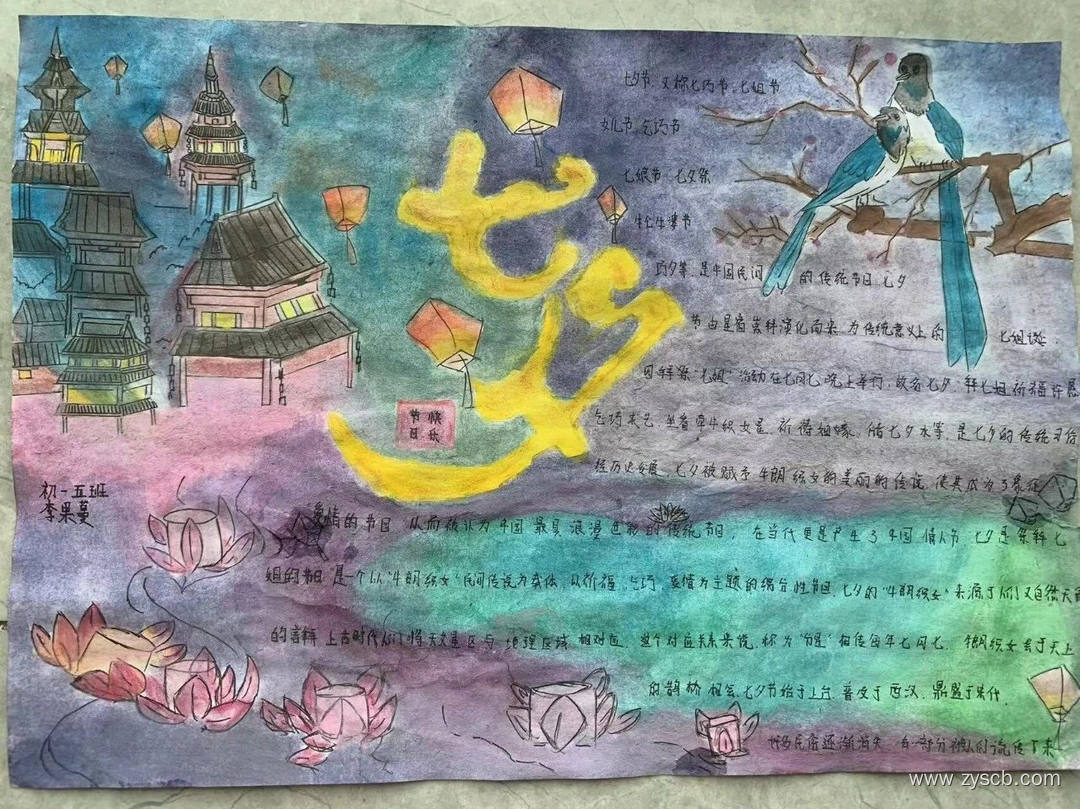 七夕
节日
快乐
初一五班
李果蔓
七夕节,又称七巧节,七姐节
女儿节 乞巧节
七娘节 七夕祭
牛七牛婆节
巧夕等,是中国民间 的传统节日,七夕
节由星宿崇拜演化而来,为传统意义上的 七姐诞.
因拜祭“七姐”活动在七月七晚上举行,故名七夕,拜七姐祈福许愿
乞巧 坐看牵牛织女星,祈祷姻缘,储七夕水等,是七夕的传统习俗
经历史发展,七夕被赋予牛朗织女的美丽的传说,使其成为了象征
爱情的节日,从而被认为中国最具浪漫色彩的传统节日,在当代更是产生了中国情人节 七夕是 拜七
姐的节日 是一个以“牛朗织女”民间传说为载体,以祈福、乞巧、爱情为主题的综合性节日,七夕的“牛朗织女”来源于人们对自然天
的 上古时代人们将天文星区与地理区域相对应,这个对应关系来说,称为“分星”相传每年七月七,牛朗织女会于天上
的鹊桥相会,七夕节始于上古,普及于西汉,鼎盛于宋代.
好多民俗逐渐消失,有一部分被人们流传下来
www.zyscb.com